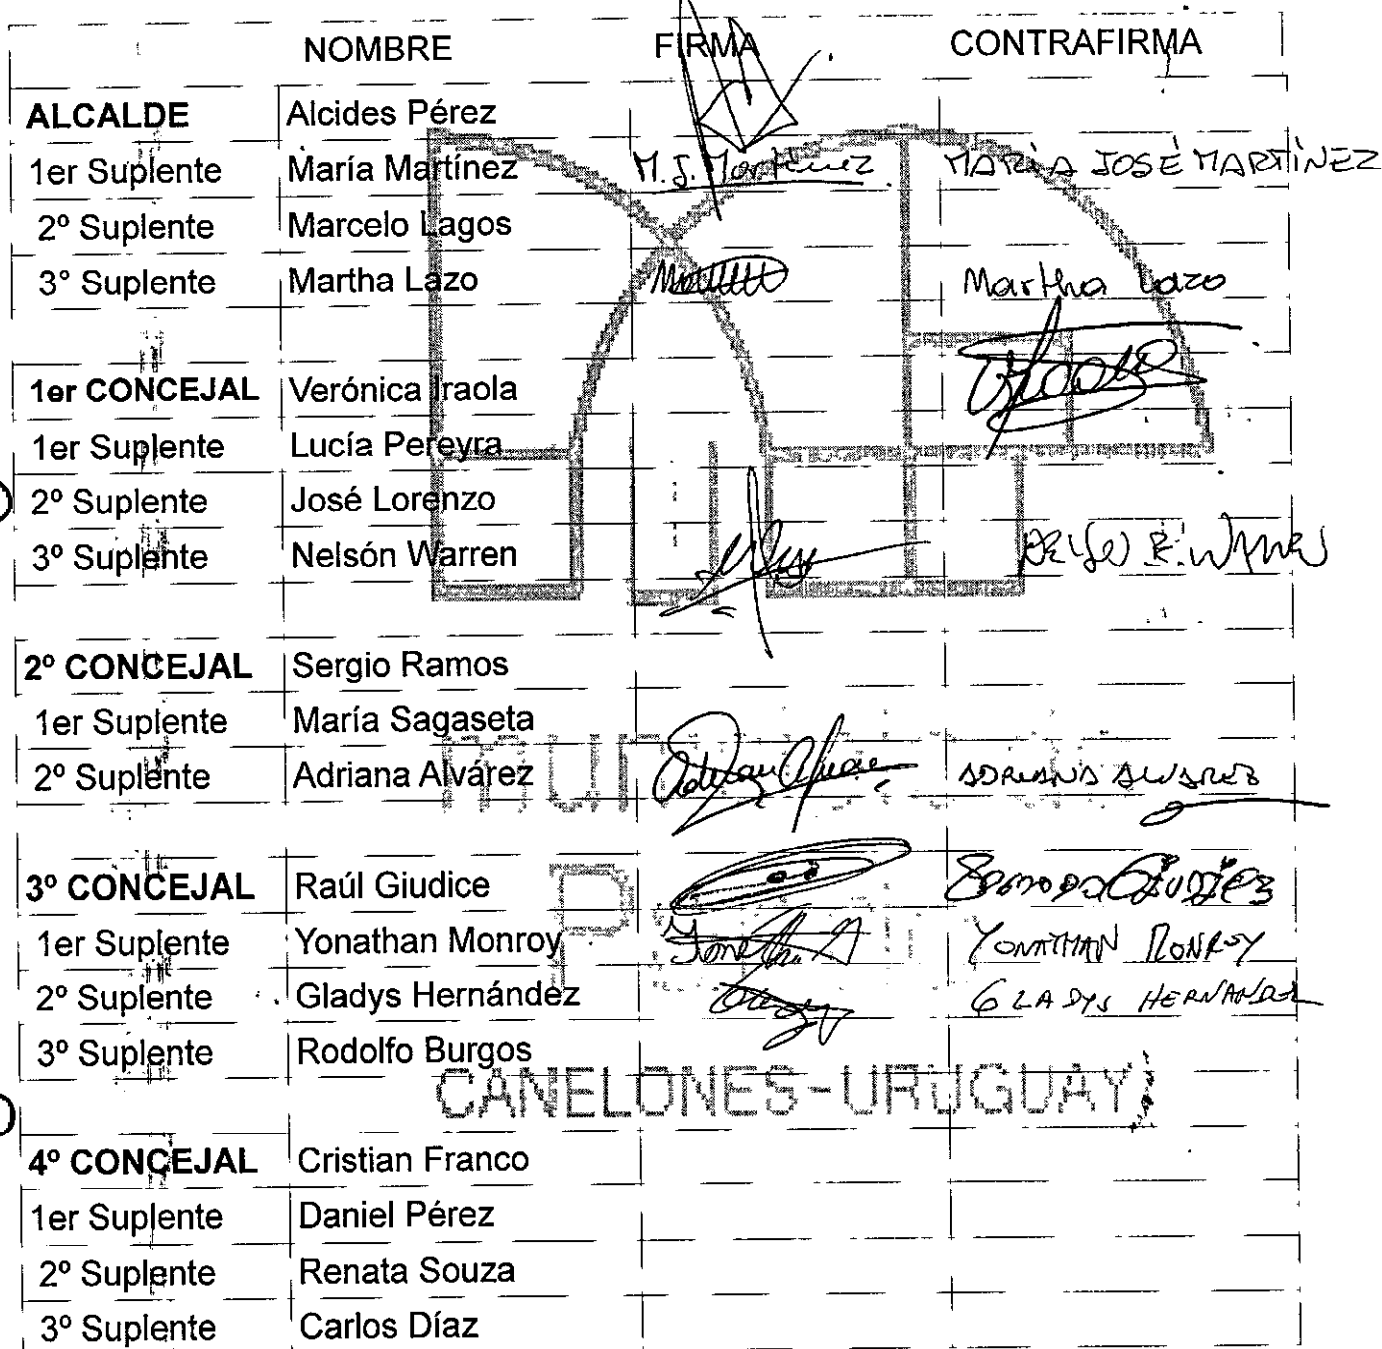 NOMBRE FIRMA CONTRAFIRMA
ALCALDE Alcides Pérez
1er Suplente María Martínez M.J. Martínez MARÍA JOSÉ MARTÍNEZ
2º Suplente Marcelo Lagos
3° Suplente Martha Lazo Martha Lazo
1er CONCEJAL Verónica Iraola
1er Suplente Lucía Pereyra
2º Suplente José Lorenzo
3º Suplente Nelsón Warren
2º CONCEJAL Sergio Ramos
1er Suplente María Sagaseta
2º Suplente Adriana Alvárez ADRIANA ALVAREZ
3º CONCEJAL Raúl Giudice
1er Suplente Yonathan Monroy YONATHAN MONROY
2º Suplente Gladys Hernández GLADYS HERNANDEZ
3º Suplente Rodolfo Burgos
CANELONES-URUGUAY
4º CONCEJAL Cristian Franco
1er Suplente Daniel Pérez
2º Suplente Renata Souza
3º Suplente Carlos Díaz